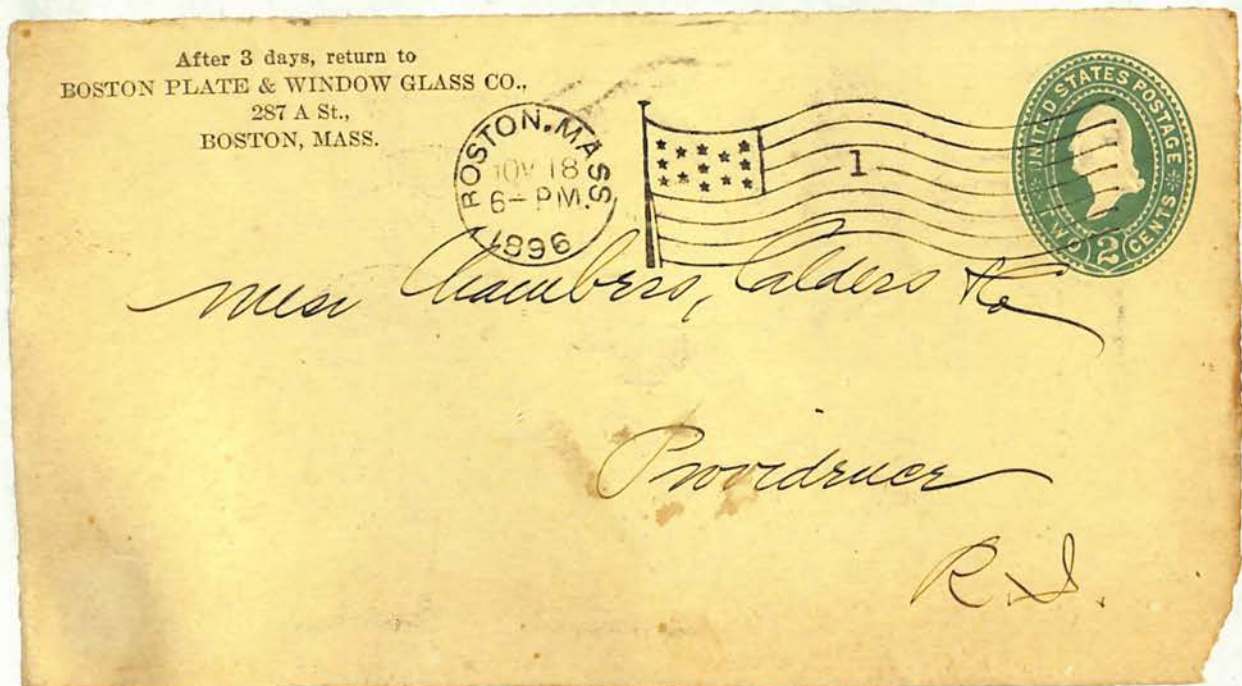 After 3 days, return to
BOSTON PLATE & WINDOW GLASS CO.,
287 A St.,
BOSTON, MASS.
BOSTON, MASS
NOV 18
6- PM.
1896
1
UNITED STATES POSTAGE
TWO 2 CENTS
Mess Chambers, Calders & Co
Providence
R.I.